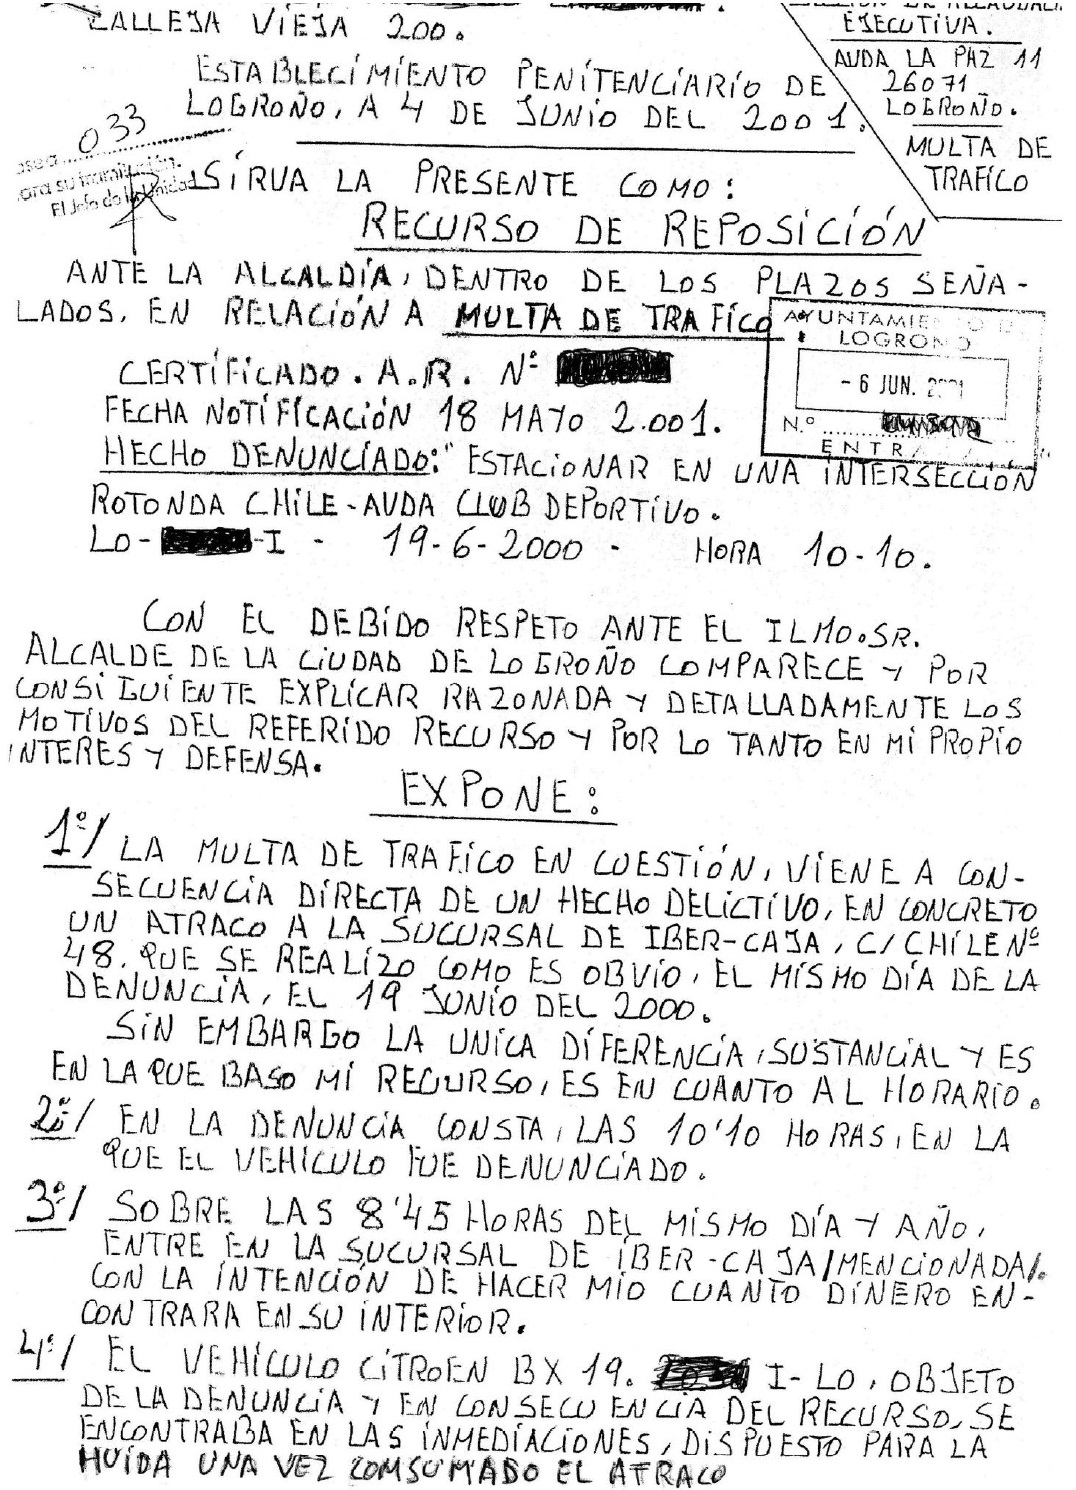 CALLEJA VIEJA 200.
EJECUTIVA.
AUDA LA PAZ 11
26071
LOGROÑO.
MULTA DE
TRAFICO
ESTABLECIMIENTO PENITENCIARIO DE
LOGROÑO, A 4 DE JUNIO DEL 2001.
033
para su tramitación.
El Jefe de la Unidad
SIRVA LA PRESENTE COMO:
RECURSO DE REPOSICIÓN
ANTE LA ALCALDÍA, DENTRO DE LOS PLAZOS SEÑA-
LADOS, EN RELACIÓN A MULTA DE TRAFICO
AYUNTAMIENTO DE
LOGROÑO
- 6 JUN. 2001
N.º
ENTRADA
CERTIFICADO. A.R. Nº
FECHA NOTIFICACIÓN 18 MAYO 2.001.
HECHO DENUNCIADO: "ESTACIONAR EN UNA INTERSECCIÓN"
ROTONDA CHILE-AUDA CLUB DEPORTIVO.
LO- -I - 19-6-2000 - HORA 10-10.
CON EL DEBIDO RESPETO ANTE EL ILMO.SR.
ALCALDE DE LA CIUDAD DE LOGROÑO COMPARECE Y POR
CONSIGUIENTE EXPLICAR RAZONADA Y DETALLADAMENTE LOS
MOTIVOS DEL REFERIDO RECURSO Y POR LO TANTO EN MI PROPIO
INTERES Y DEFENSA.
EXPONE:
1º/ LA MULTA DE TRAFICO EN CUESTIÓN, VIENE A CON-
SECUENCIA DIRECTA DE UN HECHO DELICTIVO, EN CONCRETO
UN ATRACO A LA SUCURSAL DE IBER-CAJA, C/CHILE Nº
48. QUE SE REALIZO COMO ES OBVIO, EL MISMO DÍA DE LA
DENUNCIA, EL 19 JUNIO DEL 2000.
SIN EMBARGO LA UNICA DIFERENCIA, SUSTANCIAL Y ES
EN LA QUE BASO MI RECURSO, ES EN CUANTO AL HORARIO.
2º/ EN LA DENUNCIA CONSTA, LAS 10'10 HORAS, EN LA
QUE EL VEHICULO FUE DENUNCIADO.
3º/ SOBRE LAS 8'45 HORAS DEL MISMO DÍA Y AÑO,
ENTRE EN LA SUCURSAL DE IBER-CAJA/MENCIONADA/.
CON LA INTENCIÓN DE HACER MIO CUANTO DINERO EN-
CONTRARA EN SU INTERIOR.
4º/ EL VEHICULO CITROEN BX 19. I-LO, OBJETO
DE LA DENUNCIA Y EN CONSECUENCIA DEL RECURSO, SE
ENCONTRABA EN LAS INMEDIACIONES, DISPUESTO PARA LA
HUÍDA UNA VEZ COMSUMADO EL ATRACO